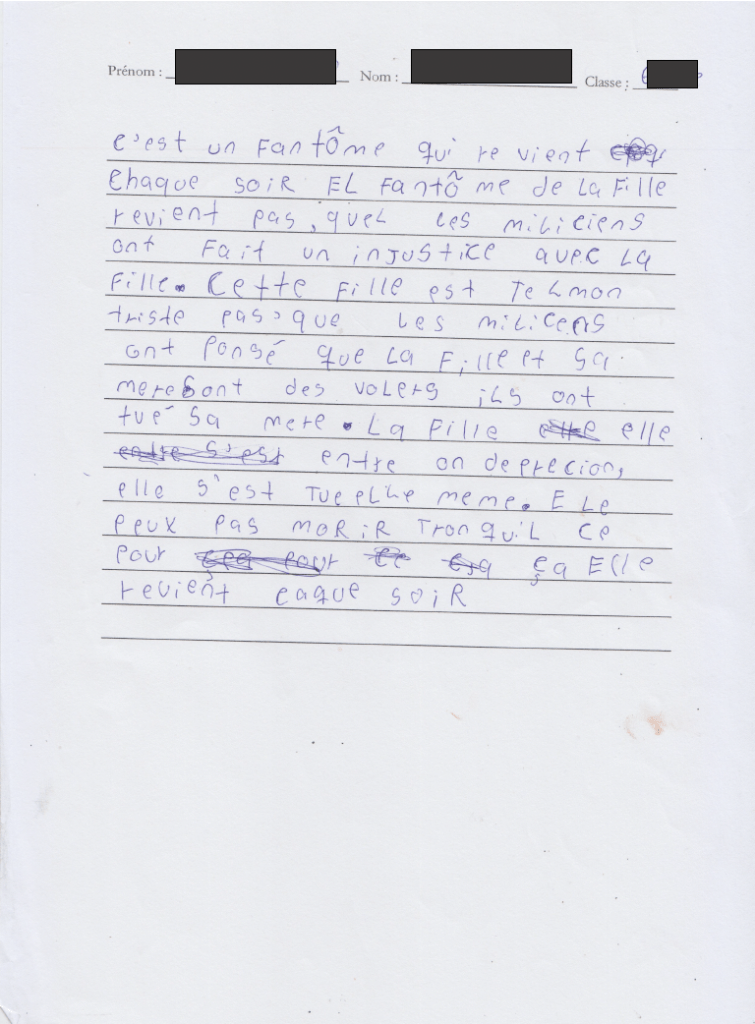 Prénom : Nom : Classe : 6
c'est un Fantôme qui revient
Chaque soiR EL Fantôme de La Fille
revient pas, queL Les miLiciens
ont Fait un injustice avec La
Fille. Cette Fille est TeLmon
triste pas'que Les miLicens
ont Pensé que La Fille et Sa
mere Sont des voLers iLs ont
tué Sa mere. La Fille elle elle
entre s'est entre on deprecion,
elle S'est Tue eLLe meme. E Le
peux pas moRiR TRonquiL Ce
pour ça Elle
revient caque soiR